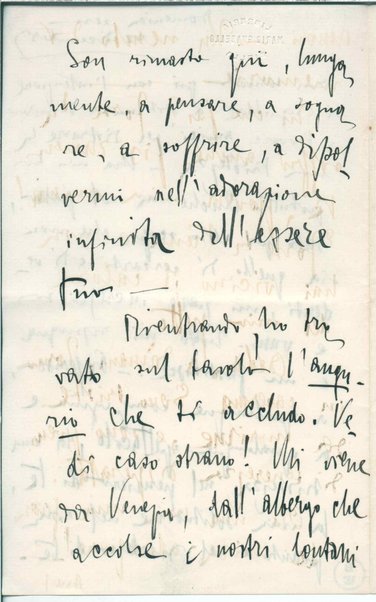 Son rimasto qui, lunga
mente a pensare, a sogna
re, a soffrire, a dissol-
vermi nell'adorazione
infinita dell'essere
tuo —
Rientrando ho tro
vato sul tavolo l'augu-
rio che ti accludo. Ve
di caso strano! Mi viene
da Venezia dall'albergo che
accolse i nostri lontani